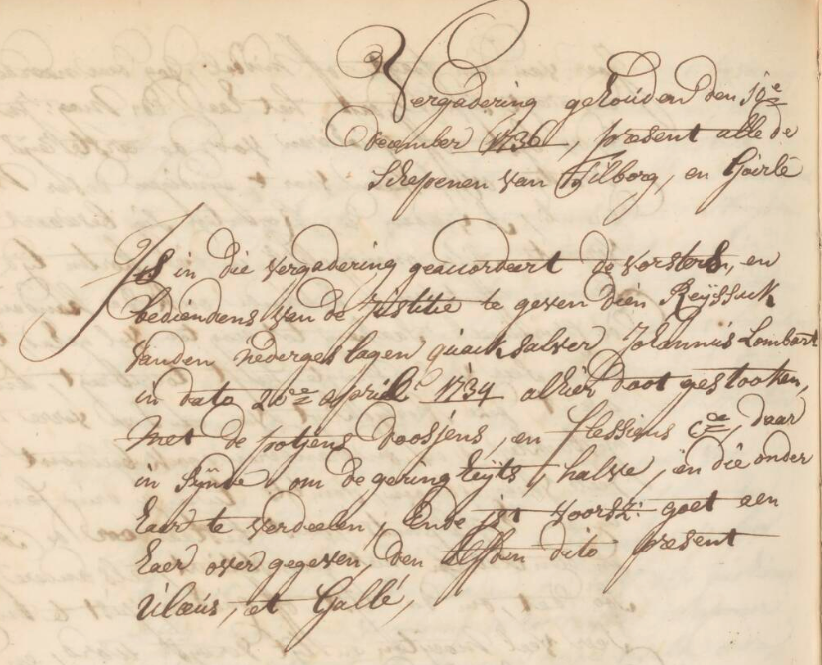 Vergadering gehouden den 10e
December 1736, present alle de
Schepenen van Tilborg, en Goirle
Is in die vergadering geaccordeert de vorsters, en
bediendens van de Justitie te geven dien Reijssack
vanden nedergeslagen quacksalver Johannis Lombart
in dato 20e april 1734 alhier doot gestooken,
met de potjens doosjens, en flessiens &c, daar
in sijnde om de geringheijts, halve, en die onder
haer te verdeelen, Ende is voorsz: goet aen
haer over gegeven, den dito present
Ulaeus, et Gallé,